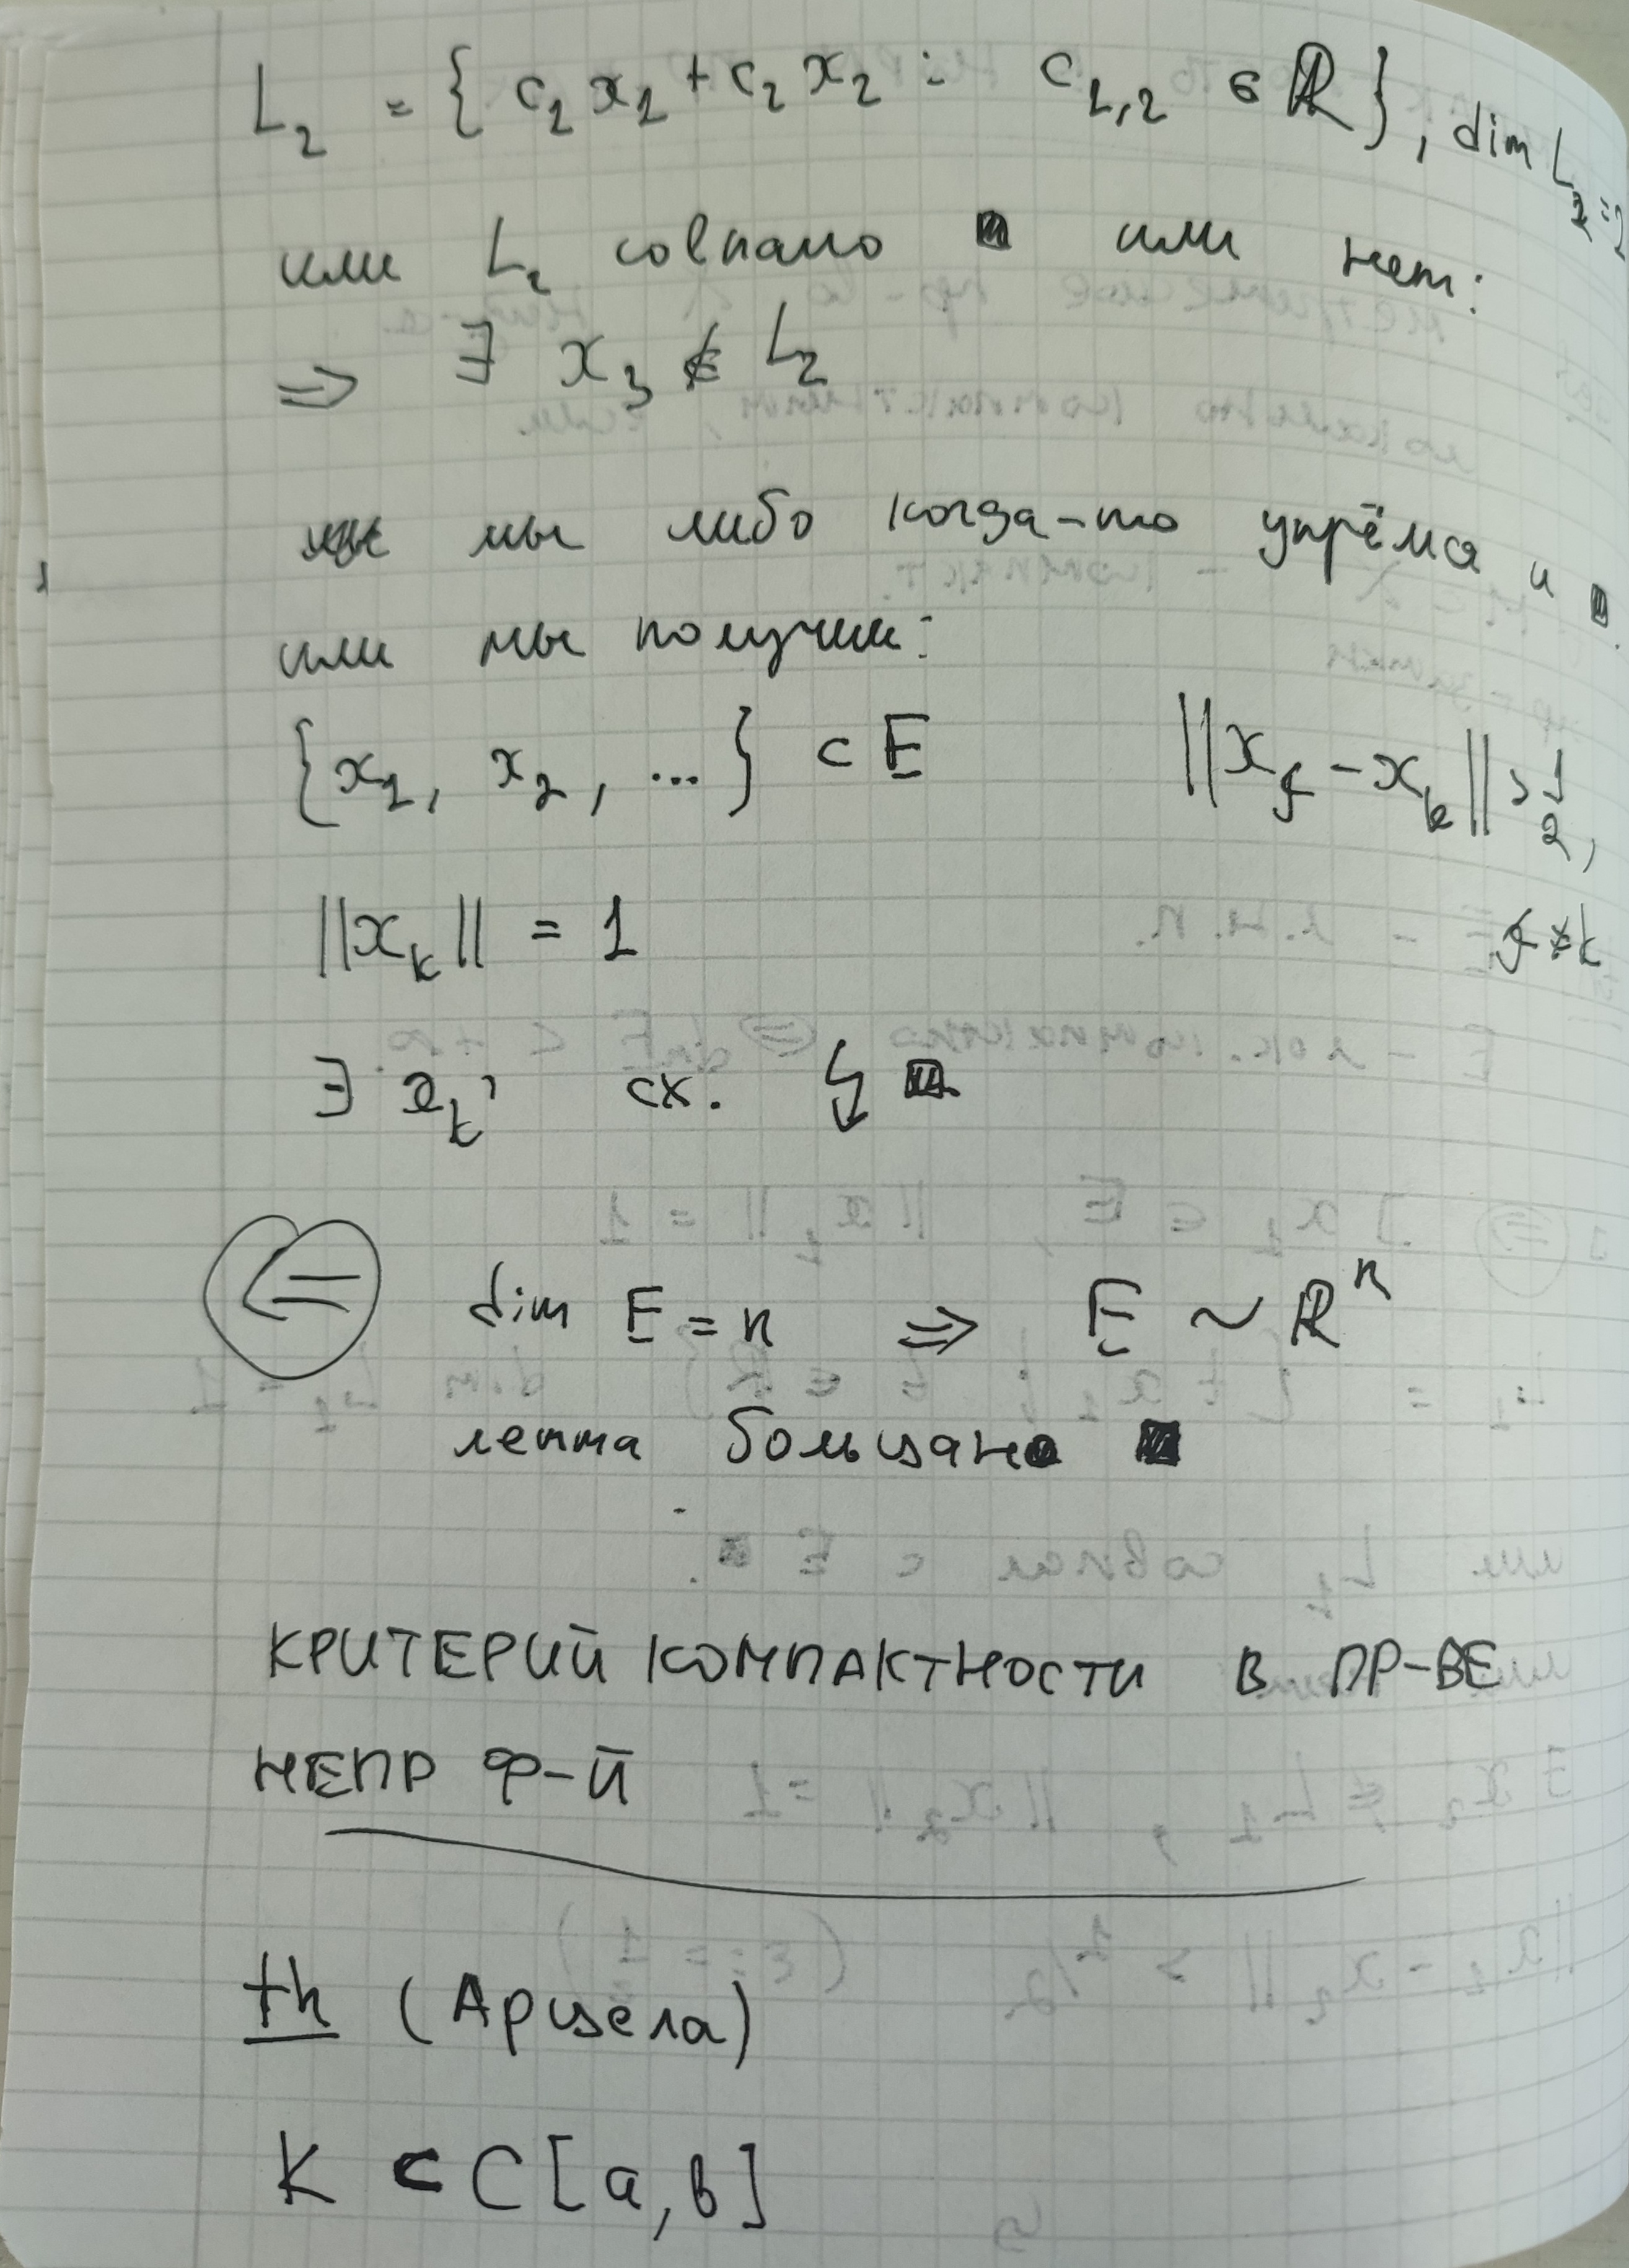 L₂ = { c₁x₁ + c₂x₂ : c₁,₂ ∈ ℝ }, dim L₂=2
или L₂ совпало ■ или нет:
⇒ ∃ x₃ ∉ L₂
мы либо когда-то упрёмся и ■
или мы получим:
{x₁, x₂, ...} ⊂ E ||x_j - x_k|| > 1/2,
||x_k|| = 1 j ≠ k
∃ x_k' сх. ↯ ■
⇐ dim E = n ⇒ E ~ ℝⁿ
лемма больцано ■
КРИТЕРИЙ КОМПАКТНОСТИ В ПР-ВЕ
НЕПР Ф-Й
th (Арцела)
K ⊂ C[a, b]